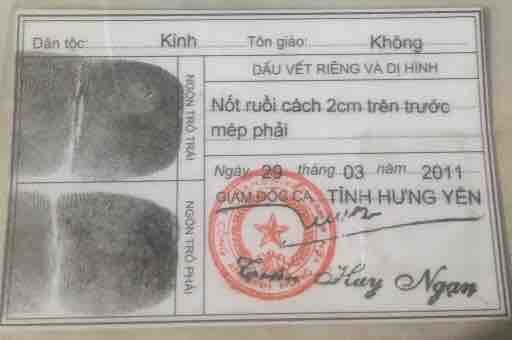 Dân tộc: Kinh Tôn giáo: Không
DẤU VẾT RIÊNG VÀ DỊ HÌNH
Nốt ruồi cách 2cm trên trước
mép phải
NGÓN TRỎ TRÁI
NGÓN TRỎ PHẢI
Ngày 29 tháng 03 năm 2011
GIÁM ĐỐC CA TỈNH HƯNG YÊN
Huy Ngạn